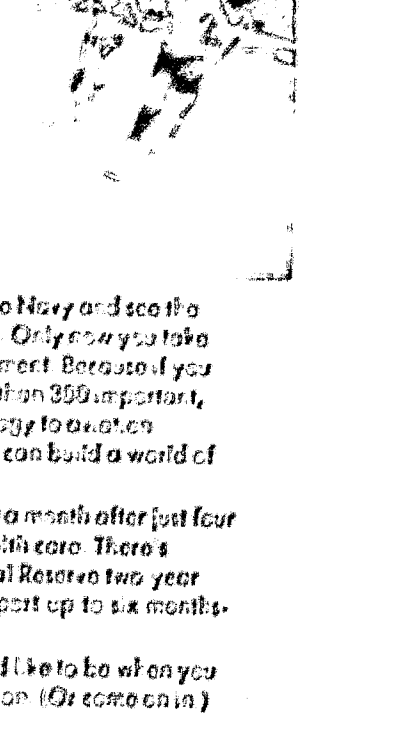 Navy and see the
Only now you take
Because if you
than 300 important,
to aviation
can build a world of
a month after just four
care. There's
Reserve two year
up to six months.
like to be when you
(Or come on in)